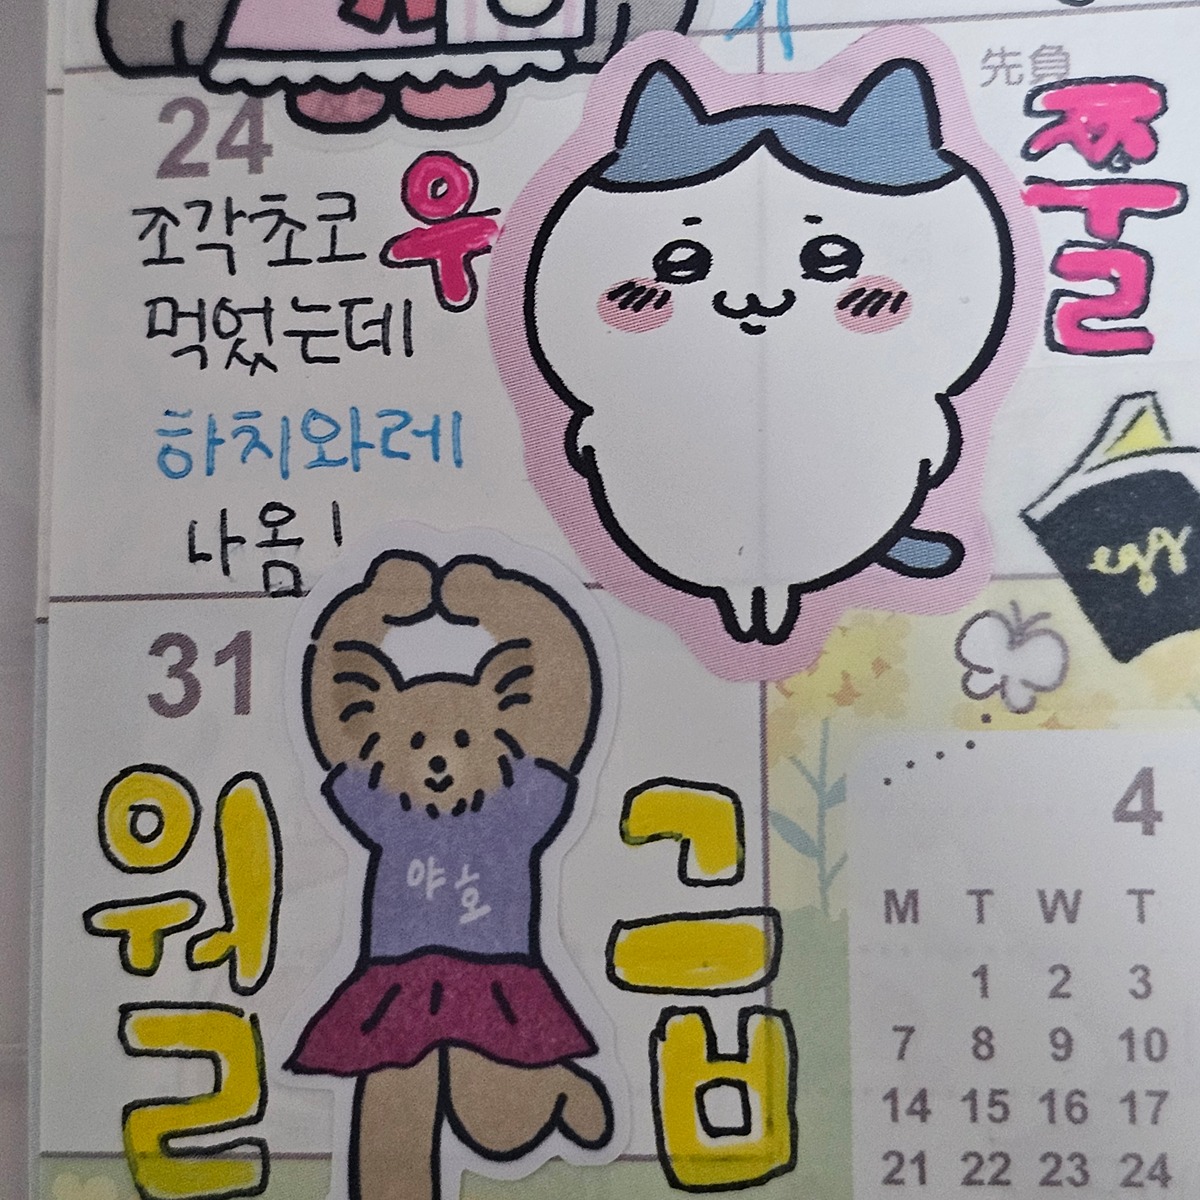 先負
24
조각초코
먹었는데
하치와레
나옴!
우
쭈
굴
egg
31
월
급
야호
4
M T W T
1 2 3
7 8 9 10
14 15 16 17
21 22 23 24